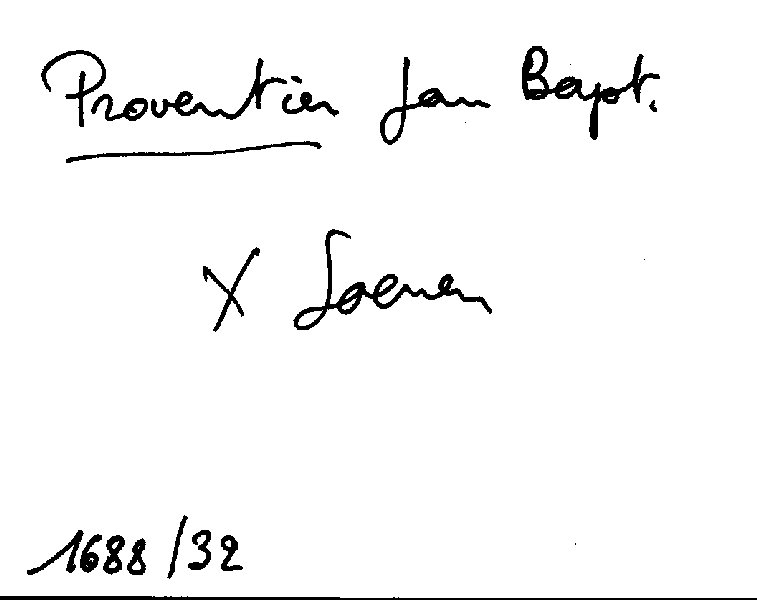 Proventier Jan Bapt.
X Loenen
1688/32